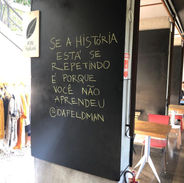 SE A HISTÓRIA
ESTÁ SE
REPETINDO
É PORQUE
VOCÊ NÃO
APRENDEU
@DAFELDMAN